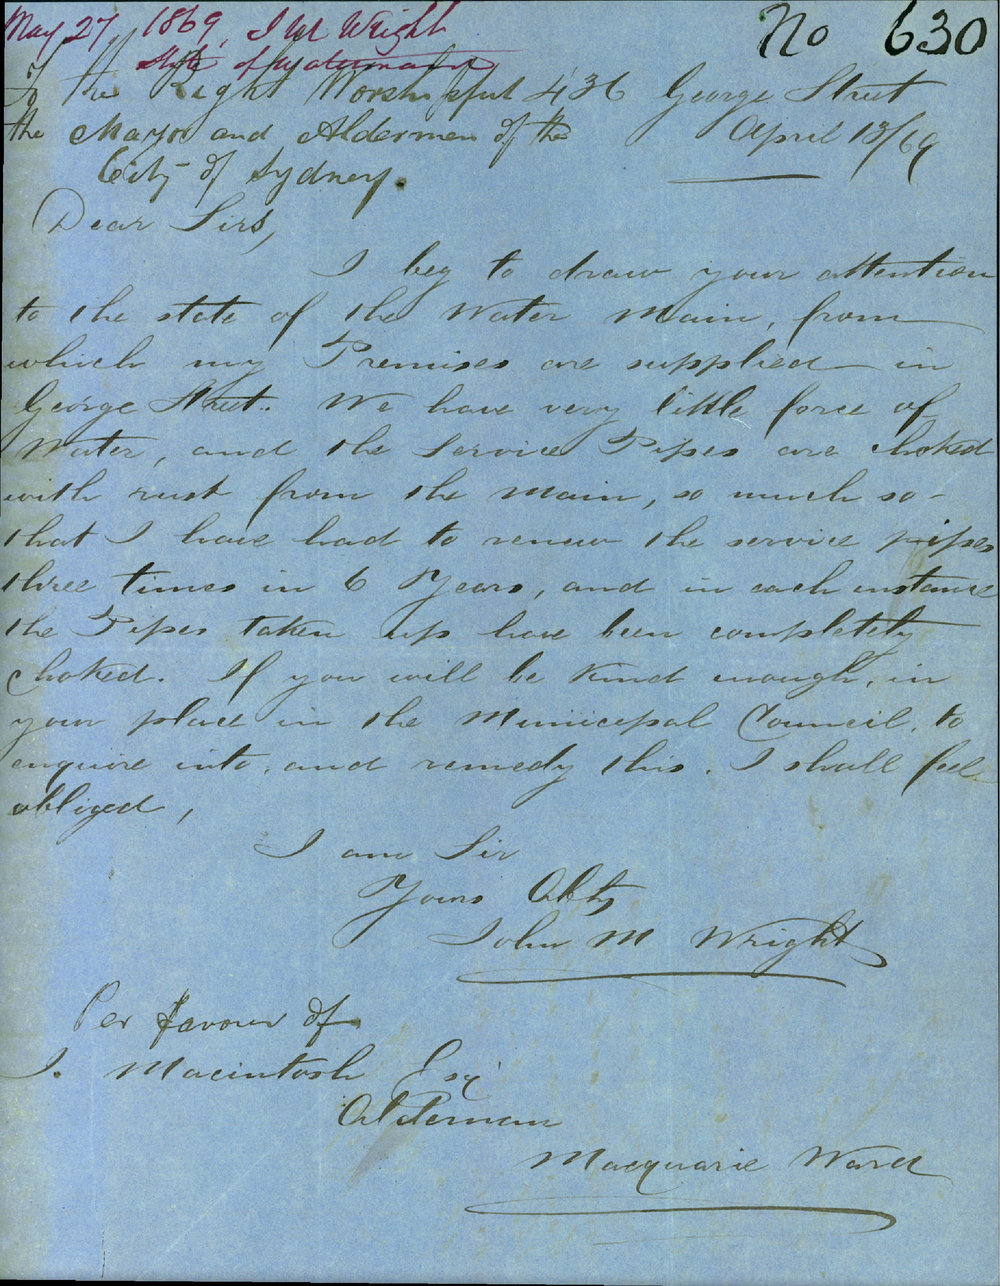 May 27, 1869, J M Wright
No 630
State of Watermain
To the Right Worshipful
436 George Street
the Mayor and Aldermen of the
April 13/69
City of Sydney.
Dear Sirs,
I beg to draw your attention
to the state of the Water Main, from
which my Premises are supplied in
George Street. We have very little force of
Water, and the Service Pipes are choked
with rust from the main, so much so
that I have had to renew the service pipes
three times in 6 Years, and in each instance
the Pipes taken up have been completely
choked. If you will be kind enough, in
your place in the Municipal Council, to
enquire into, and remedy this. I shall feel
obliged,
I am Sir
Yours Obtly
John M Wright
Per favour of
J. Macintosh Esq
Alderman
Macquarie Ward